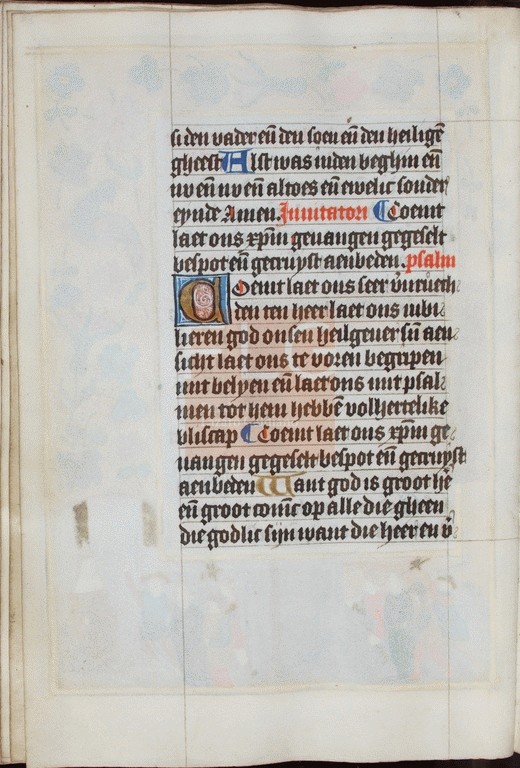 si den vader eñ den soen eñ den heiligē
gheest Alst was inden beghin eñ
nv eñ nv eñ altoes eñ ewelic sonder
eynde Amen. Inuitatori Coemt
laet ons xp̄m geuangen gegeselt
bespot eñ gecruyst aenbeden. psalm
Coemt laet ons seer v̄uruech
den ten heer laet ons iubi
lieren god onsen heilgeuer sū aen
sicht laet ons te voren begripen
mit belyen eñ laet ons mit psal
men tot hem hebbē volhertelike
bliscap Coemt laet ons xp̄m ge
uangen gegeselt bespot eñ gecruyst
aenbeden Want god is groot hē
eñ groot coninc op alle die gheen
die godlic sijn want die heer en v̄